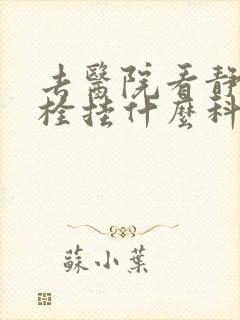 去醫院看靜
栓挂什麼科
蘇小葉